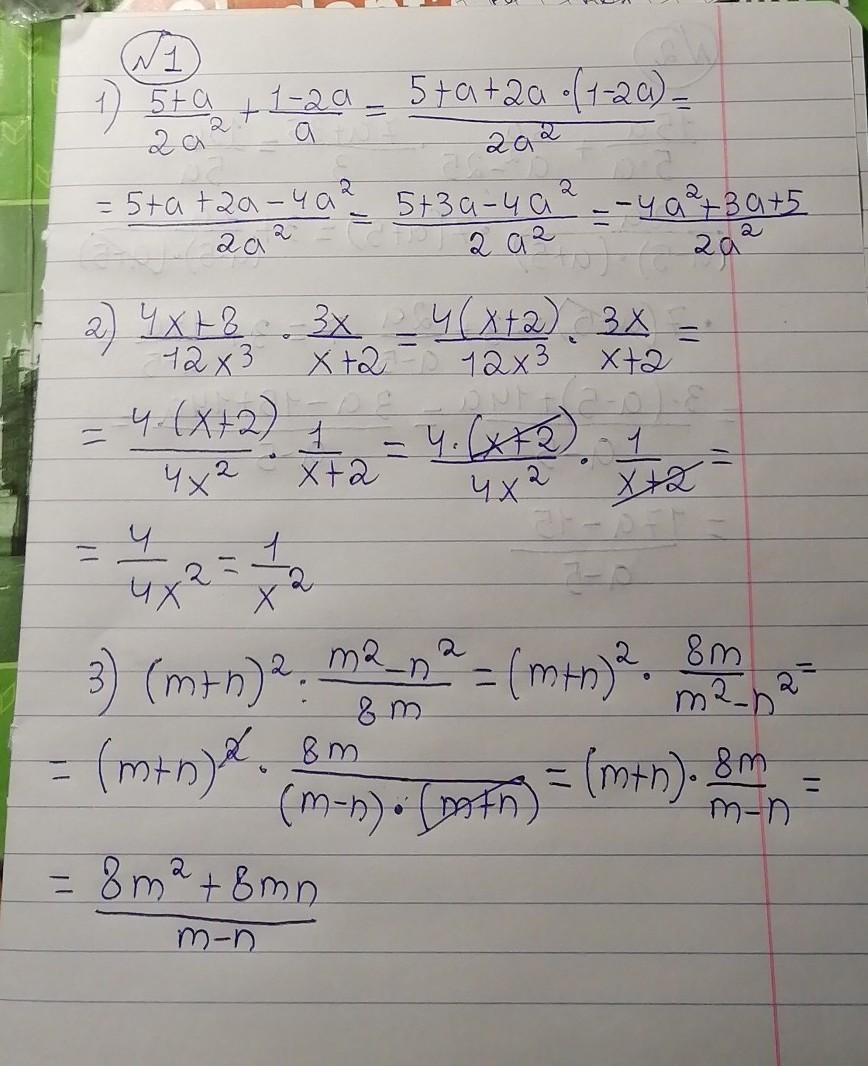 №1
1) \frac{5+a}{2a^2} + \frac{1-2a}{a} = \frac{5+a+2a·(1-2a)}{2a^2} =
= \frac{5+a+2a-4a^2}{2a^2} = \frac{5+3a-4a^2}{2a^2} = \frac{-4a^2+3a+5}{2a^2}
2) \frac{4x+8}{12x^3} · \frac{3x}{x+2} = \frac{4(x+2)}{12x^3} · \frac{3x}{x+2} =
= \frac{4·(x+2)}{4x^2} · \frac{1}{x+2} = \frac{4·(x+2)}{4x^2} · \frac{1}{x+2} =
= \frac{4}{4x^2} = \frac{1}{x^2}
3) (m+n)^2 : \frac{m^2-n^2}{8m} = (m+n)^2 · \frac{8m}{m^2-n^2} =
= (m+n)^2 · \frac{8m}{(m-n)·(m+n)} = (m+n) · \frac{8m}{m-n} =
= \frac{8m^2+8mn}{m-n}